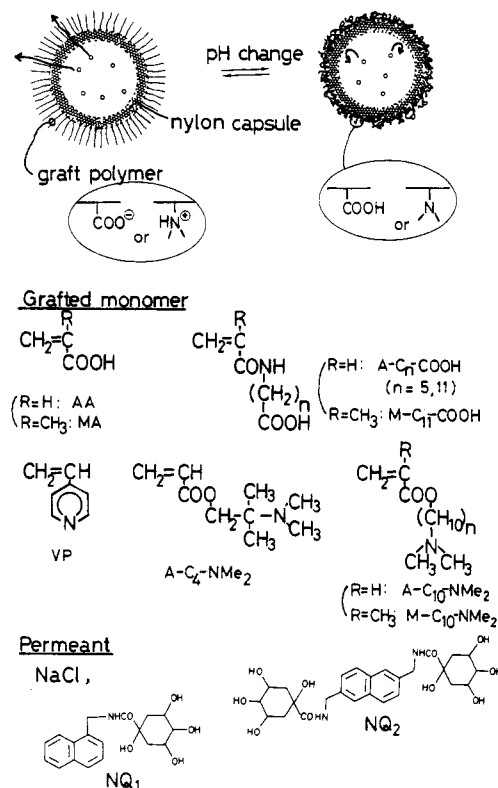 pH change
nylon capsule
graft polymer
COO⊖ or HN⊕
COOH or N
Grafted monomer
R
CH2=C
COOH
(R=H: AA
R=CH3: MA
R
CH2=C
CONH
(CH2)n
COOH
(R=H: A-Cn-COOH
(n=5,11)
R=CH3: M-C11-COOH
CH2=CH
N
VP
CH2=CH
COO
CH3
CH2-C-N
CH3
CH3
CH3
A-C4-NMe2
R
CH2=C
COO
(CH10)n
N
CH3 CH3
(R=H: A-C10-NMe2
R=CH3: M-C10-NMe2
Permeant
NaCl,
NHCO OH
OH
HO OH
OH
NQ1
OH
HO OH
HO
HO CONH
NHCO OH
OH
HO OH
OH
NQ2